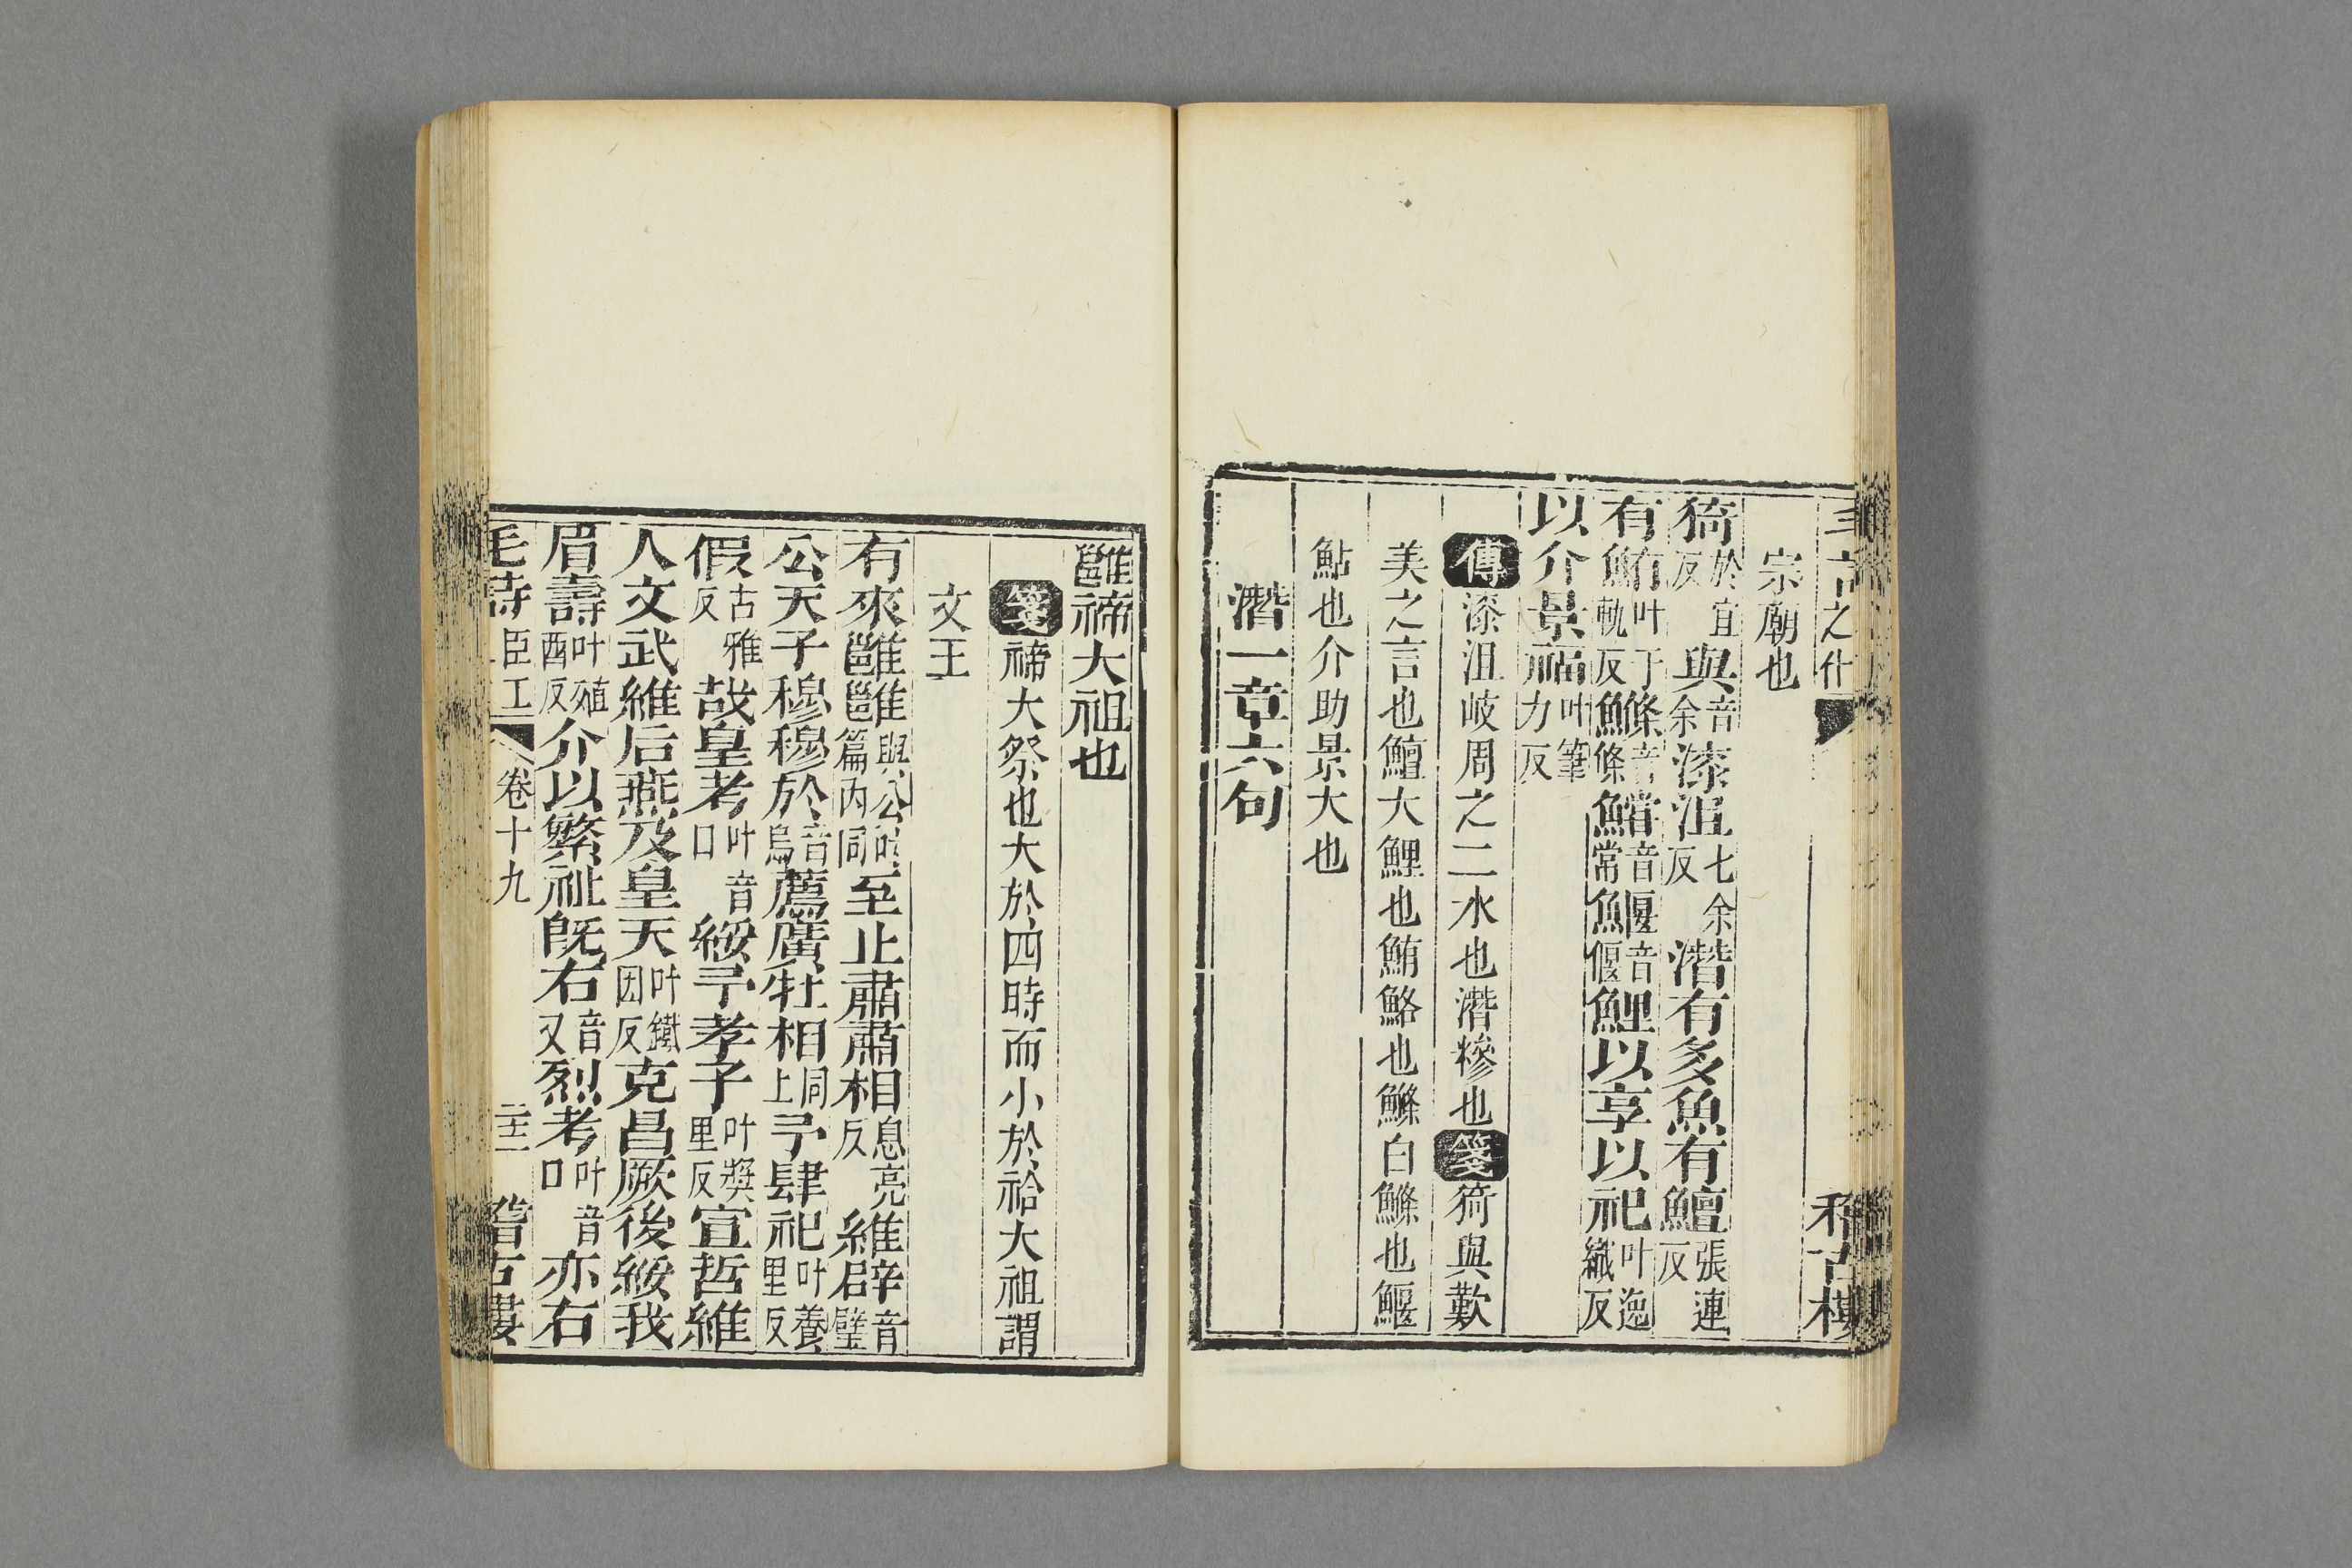 宗廟也
猗於宜反與音余漆沮七余反潛有多魚有鱣張連反
有鮪叶于軌反鰷音條鱨音常鰋音偃鯉以享以祀叶逸織反
以介景福叶筆力反
傳漆沮岐周之二水也潛糝也箋猗與歎
美之言也鱣大鯉也鮪鮥也鰷白鰷也鰋
鮎也介助景大也
潛一章六句
雝禘大祖也
箋禘大祭也大於四時而小於祫大祖謂
文王
有來雝雝與公叶篇內同至止肅肅相息亮反維辟音璧
公天子穆穆於音烏薦廣牡相同上予肆祀叶養里反
假古雅反哉皇考叶音口綏予孝子叶獎里反宣哲維
人文武維后燕及皇天叶鐵因反克昌厥後綏我
眉壽叶殖酉反介以繁祉既右音又烈考叶音口亦右
毛詩 臣工 卷十九